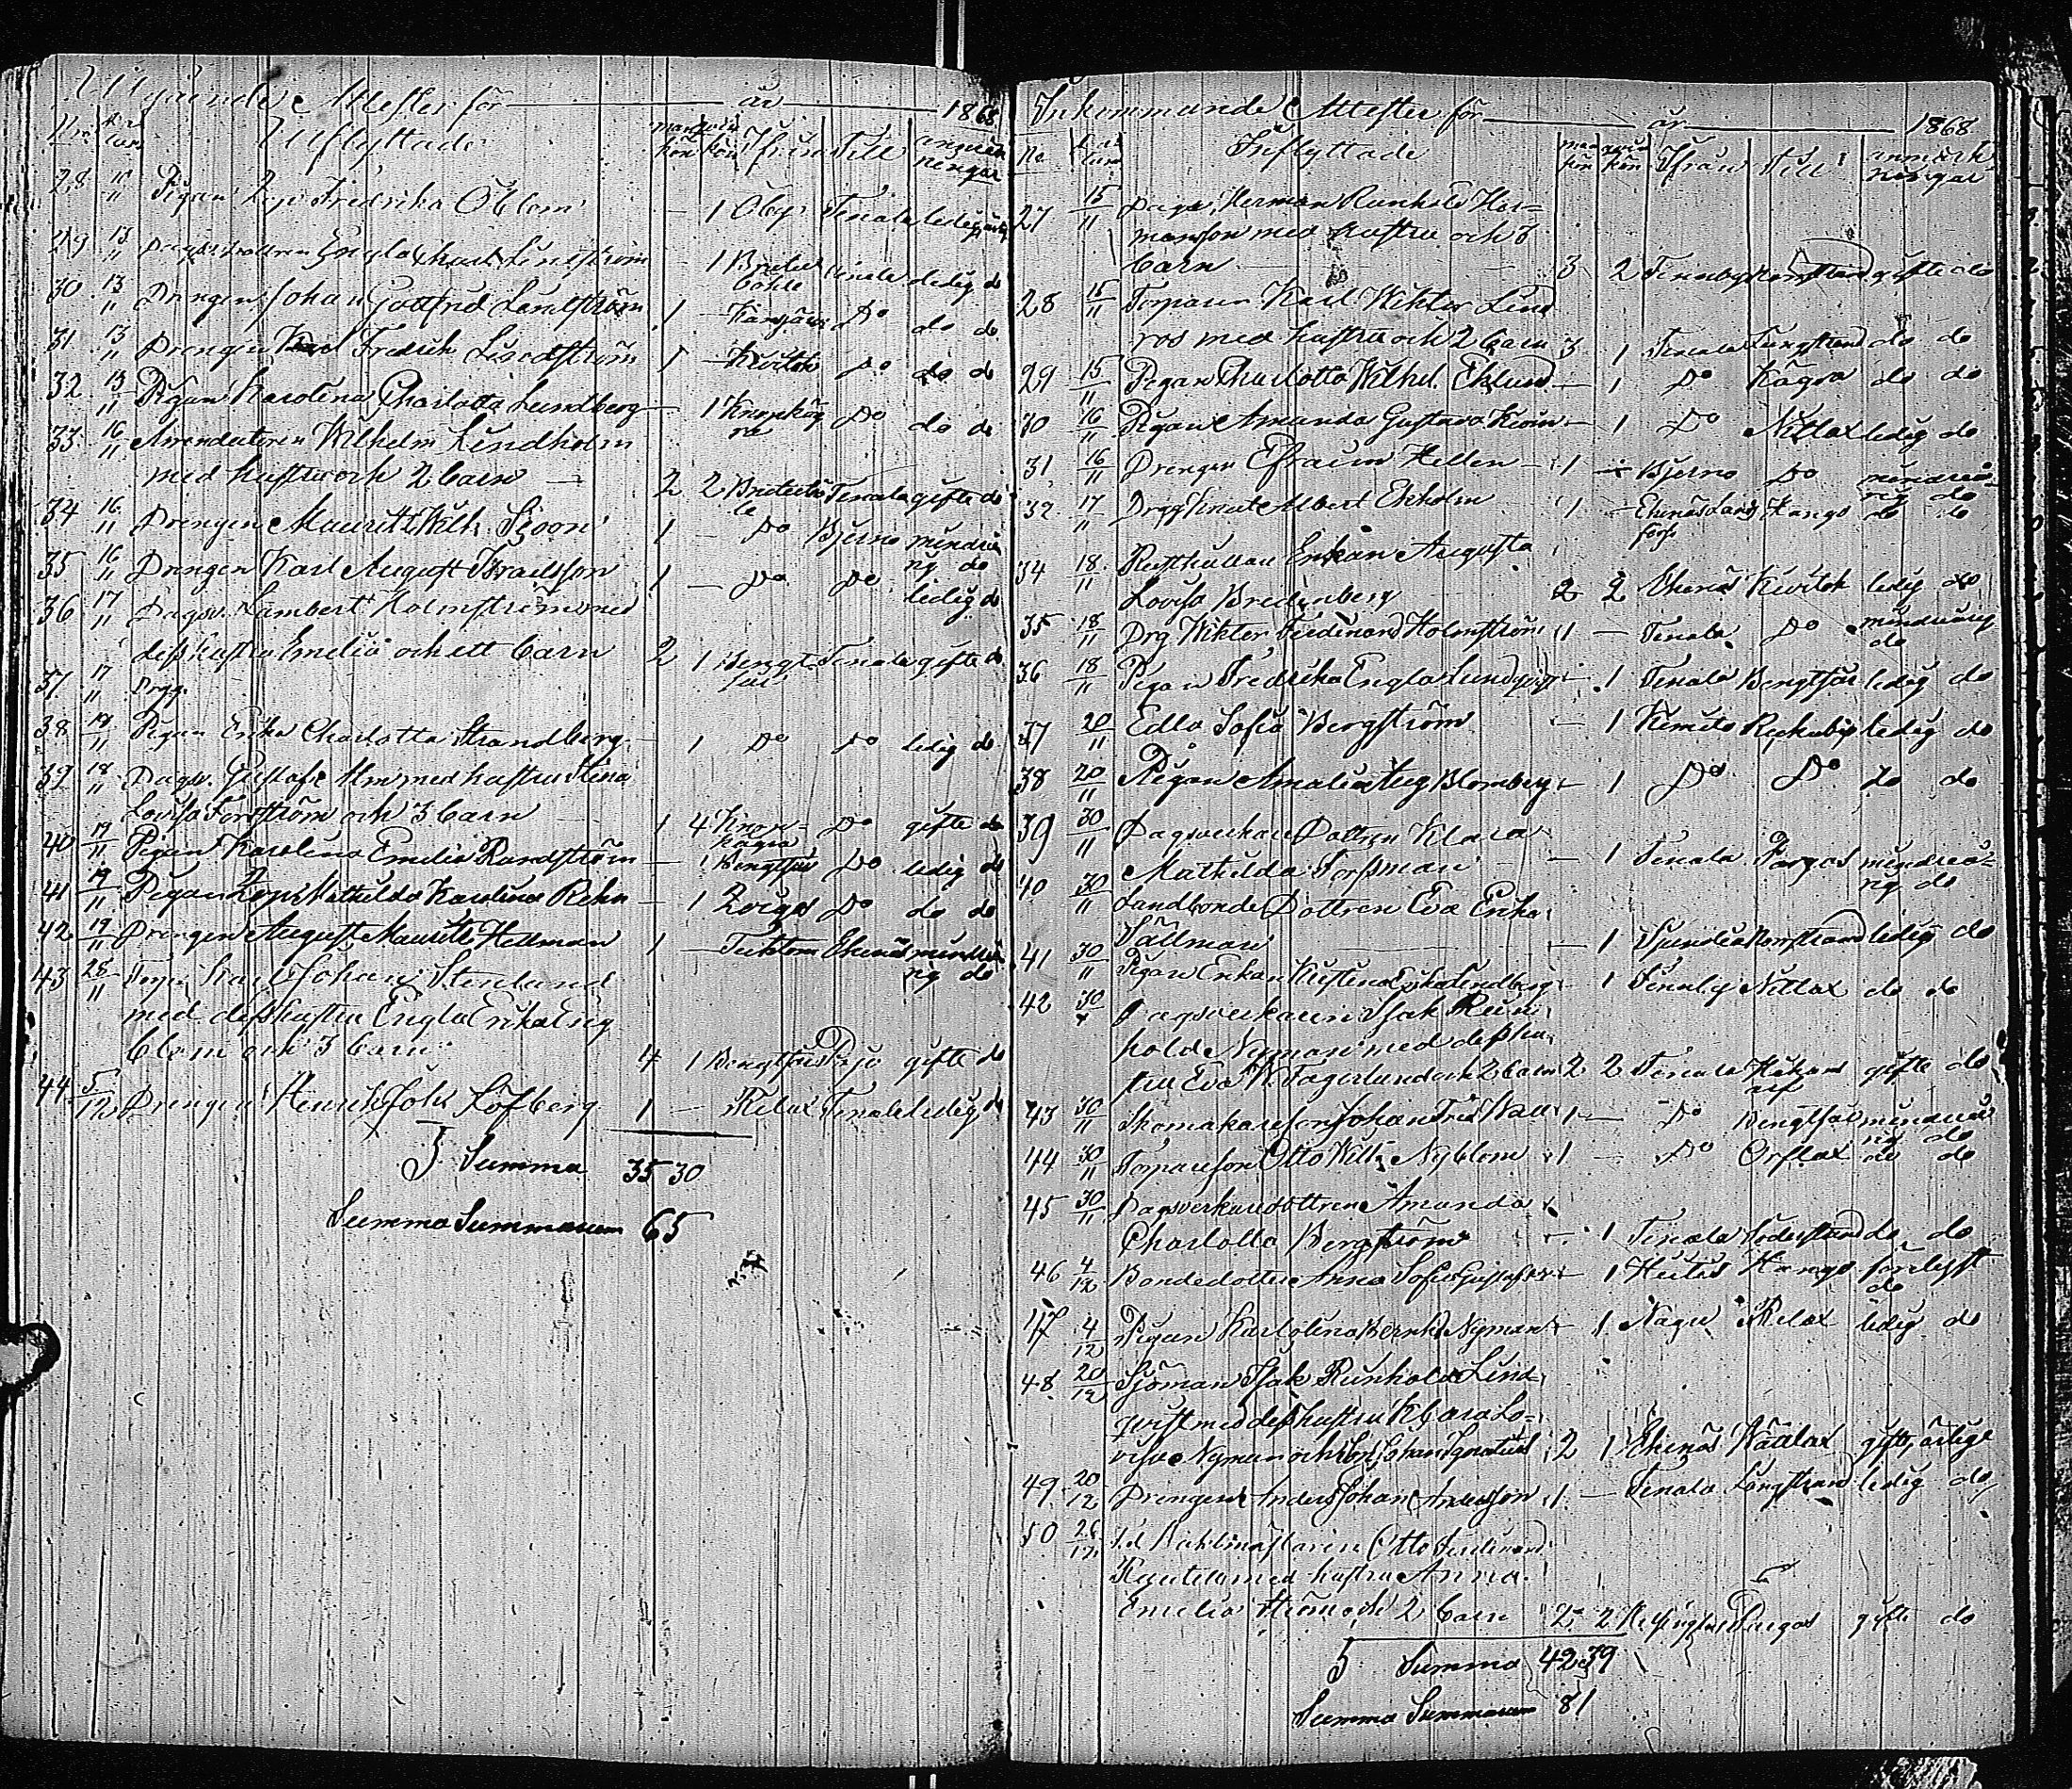 Utgående Attester för år 1868
No Utflyttade mankön qvinkön Ifrån Till anmärkningar
28 Pigan Fredrika Öblom — 1 Öby Tenala ledig
29 13/11 Engla Lindström — 1 Tenala ledig do
30 13/11 Drengen Johan Gottfrid Lindström 1 — Do do do
31 13/11 Drengen Karl Fredrik Lindström 1 — Kivitok Do do do
32 13/11 Pigan Karolina Charlotta Lundberg — 1 Do do do
33 16/11 Arrendatoren Wilhelm Lindholm
med hustru och 2 barn — 2 2 Tenala gifte do
34 16/11 Drengen Mauritz Wilh. Sjöön 1 — Do Bjerno minderå
rig do
35 16/11 Drengen Karl August Israelsson 1 — Do Do ledig do
36 17/11 Dagsv. Lambert Holmström med
dess hustru Emelia och ett barn 2 1 Bengt Tenala gifte do
37 17/11 Drgg.
38 18/11 Pigan Erika Charlotta Strandberg — 1 Do Do ledig do
39 18/11 Dagsv. Gustaf Alm med hustru Stina
Lovisa Forsström och 3 barn 1 4 Do gifte do
40 19/11 Pigan Karolina Emelia Randström — 1 Bengtsår Do ledig do
41 19/11 Pigan Mathilda Karolina Rehn — 1 Do do do
42 19/11 Drengen August Mauritz Hellman 1 — Ekenäs minderå
rig do
43 28/11 Karl Johan Stenlund
med dess hustru Engla Erika Eng
blom och 3 barn 4 1 Bengtsår gifte do
44 5/12 Drengen Henrik Joh. Löfberg 1 — Rilax Tenala ledig do
Summa 35 30
Summa Summarum 65
Inkommande Attester för år 1868
No Inflyttade mankön qvinkön Ifrån Till anmärkningar
27 15/11 Dagsv. Herman Runhold Her=
manson med hustru och 3
barn 3 2 Tennby gifte do
28 15/11 Torparen Karl Wiktor Lind
ros med hustru och 2 barn 3 1 Tenala Långstrand do do
29 15/11 Pigan Charlotta Wilhel. Eklund — 1 Do Kägra do do
30 16/11 Pigan Amanda Gustava — 1 Do Nitlax ledig do
31 16/11 Drengen Efraim Hellen — 1 — Bjerno Do minderå=
rig do
32 17/11 Drgg Knut Albert Ekholm 1 — Ekenäs Lands Hangö do do
förs
34 18/11 Enkan Augusta
Lovisa Bredenberg 2 2 Ekenäs Kivitok ledig do
35 18/11 Drg Wiktor Ferdinand Holmström 1 — Tenala Do minderårig
do
36 18/11 Pigan Fredrika Engla Lundqvist — 1 Tenala Bengtsår ledig do
37 20/11 Edla Sofia Bergström — 1 Kimito ledig do
38 20/11 Pigan Amalia Aug Blomberg — 1 Do Do do do
39 30/11 Dagsverkare Dottren Klara
Mathilda Forssman — 1 Tenala minderå=
rig do
40 30/11 Landbonde Dottren Eva Erika
Sällman — 1 ledig do
41 30/11 Pigan Erika Lindberg — 1 Tenala Nitlax do do
42 30/ Dagsverkaren Isak Rein
hold Nyman med dess hu
stru Eva W. Fagerlund och 2 barn 2 2 Tenala gifte do
43 30/11 Skomakareson Johan Fred 1 — Do Bengtsår minderå
rig do
44 30/11 Torpareson Otto Wilh. Nyblom 1 — Do do do
45 30/11 Dagsverkaredottren Amanda
Charlotta Bergström — 1 Tenala Söderstrand do do
46 4/12 Bondedotter Anna Sofia — 1 Hangö do
47 4/12 Pigan Karolina Bernh. Nyman — 1 Nagu Rilax ledig do
48 20/12 Sjöman Isak Reinhold Lind=
qvist med dess hustru Klara Lo=
visa Nyman och son Johan Ignatius 2 1 Ekenäs gift, ärlige
49 20/12 Drengen Anders Johan Andersson 1 — Tenala Långstrand ledig do
50 26/12 Otto Ferdinand
med hustru Anna
Emelia och 2 barn 2 2 gifte do
Summa 42 39
Summa Summarum 81